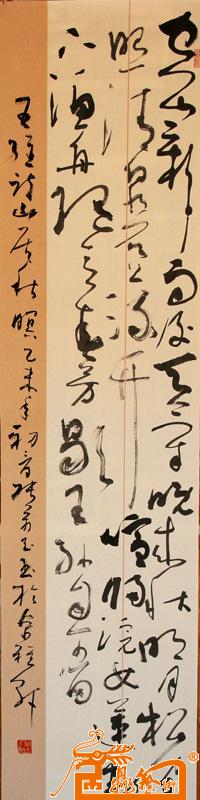 空山新雨後天气晚来秋明月松间
照清泉石上流竹喧归浣女莲动
下渔舟随意春芳歇王孙自可留
王维诗山居秋暝乙未年初
书於
轩